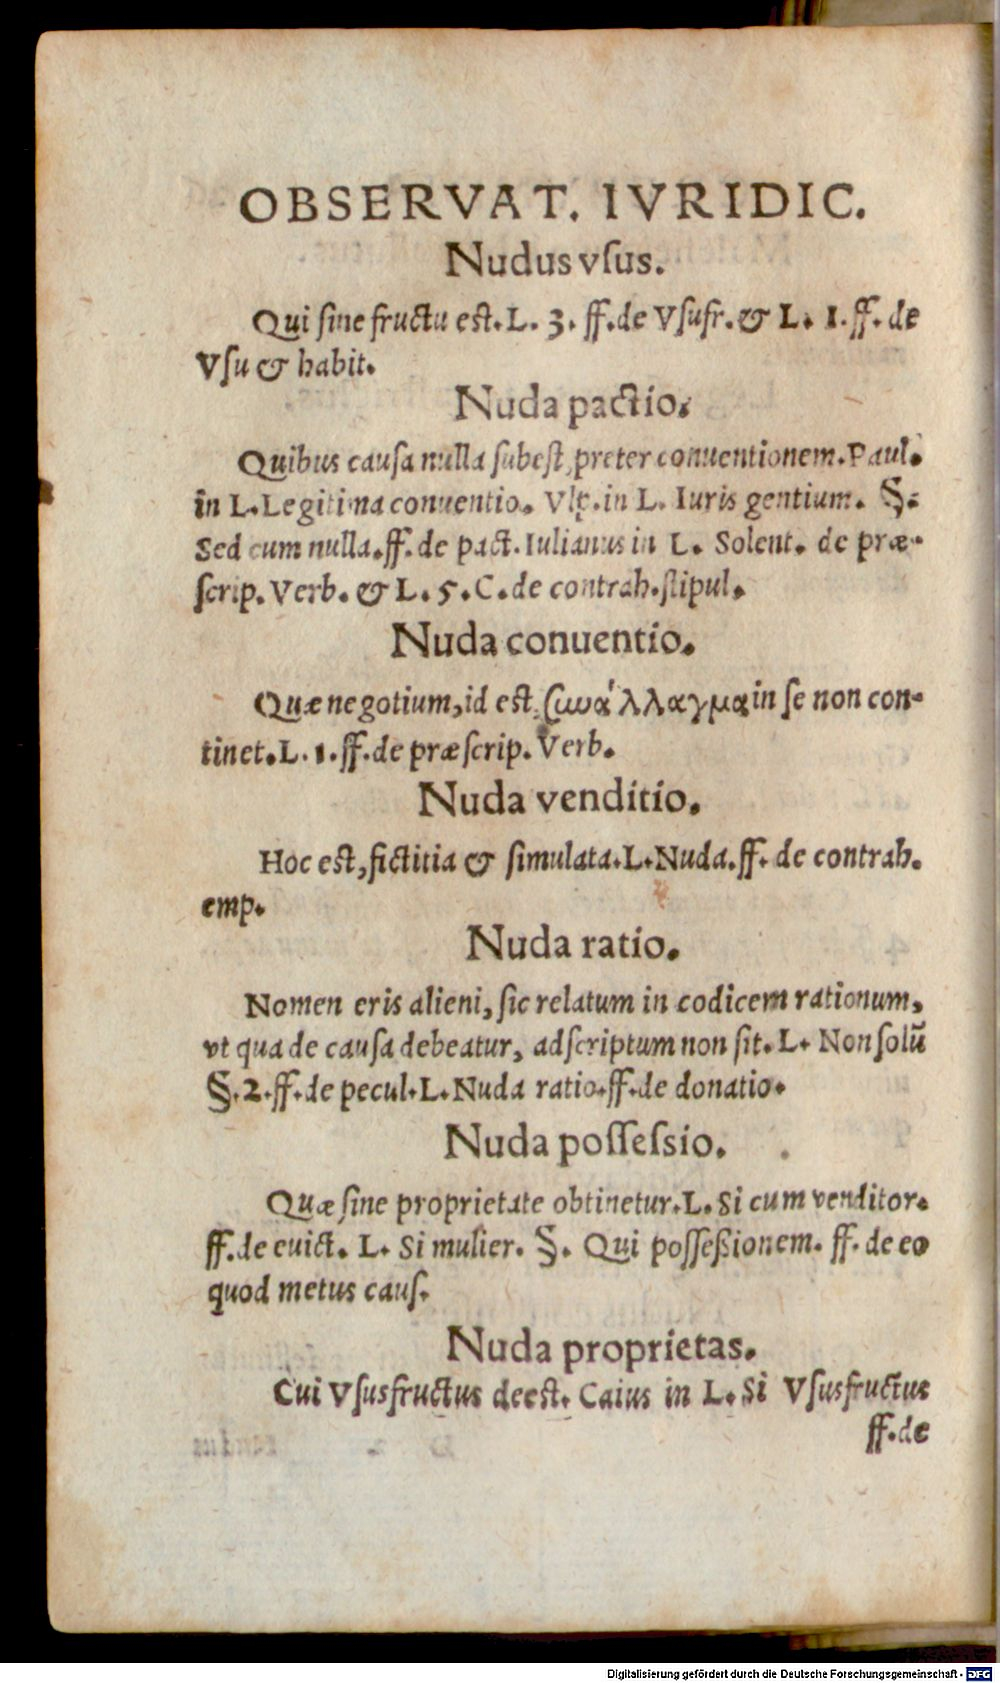 OBSERVAT. IVRIDIC.
Nudus vſus.
Qui ſine fructu est. L. 3. ff. de Vſufr. & L. 1. ff. de
Vſu & habit.
Nuda pactio.
Quibus cauſa nulla ſubeſt, preter conuentionem. Paul.
in L. Legitima conuentio. Vlp. in L. Iuris gentium. §.
Sed cum nulla. ff. de pact. Iulianus in L. Solent. de præ-
ſcrip. Verb. & L. 5. C. de contrah. ſtipul.
Nuda conuentio.
Quæ negotium, id est, ſυνάλλαγμα in ſe non con-
tinet. L. 1. ff. de præſcrip. Verb.
Nuda venditio.
Hoc est, fictitia & ſimulata. L. Nuda. ff. de contrah.
emp.
Nuda ratio.
Nomen eris alieni, ſic relatum in codicem rationum,
vt qua de cauſa debeatur, adſcriptum non ſit. L. Non ſolū
§. 2. ff. de pecul. L. Nuda ratio. ff. de donatio.
Nuda poſſeſsio.
Quæ ſine proprietate obtinetur. L. Si cum venditor.
ff. de euict. L. Si mulier. §. Qui poſſeßionem. ff. de eo
quod metus cauſ.
Nuda proprietas.
Cui Vſusfructus deest. Caius in L. Si Vſusfructus
ff. de
Digitalisierung gefördert durch die Deutsche Forschungsgemeinschaft - DFG